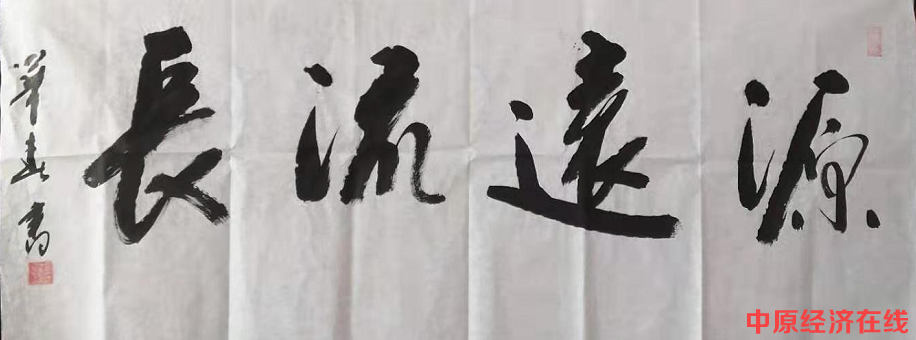 源遠流長
中原经济在线